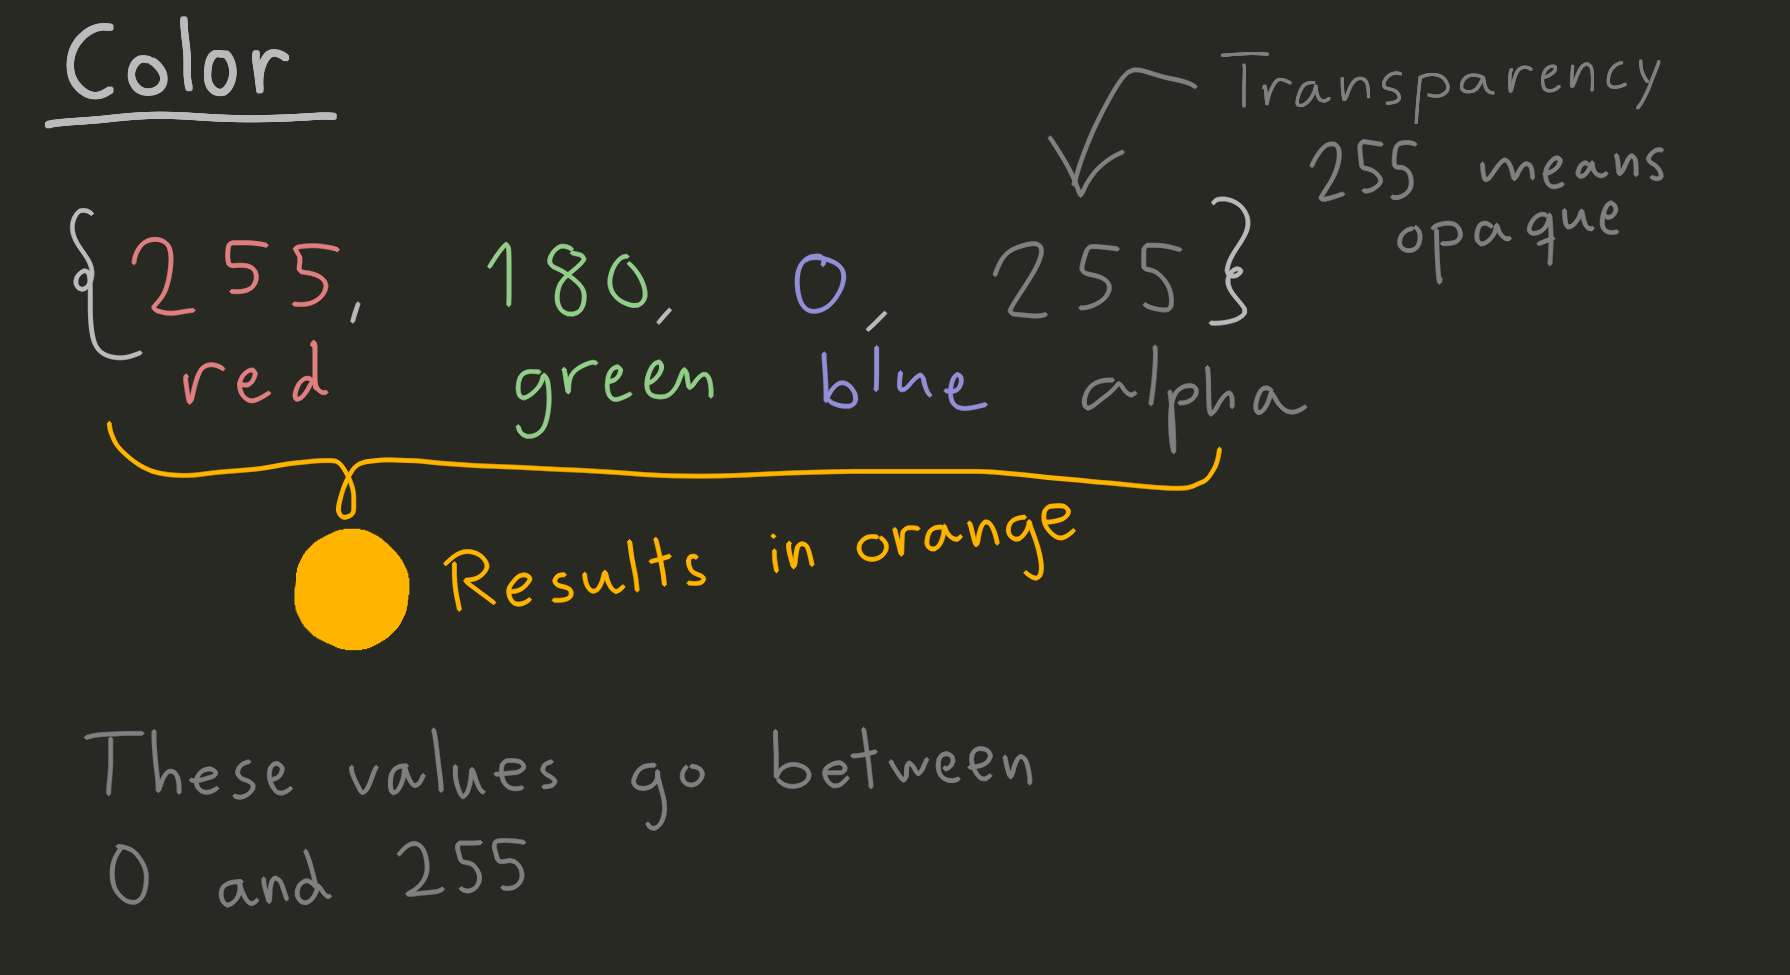 Color
Transparency
255 means
opaque
{255, 180, 0, 255}
red green blue alpha
Results in orange
These values go between
0 and 255